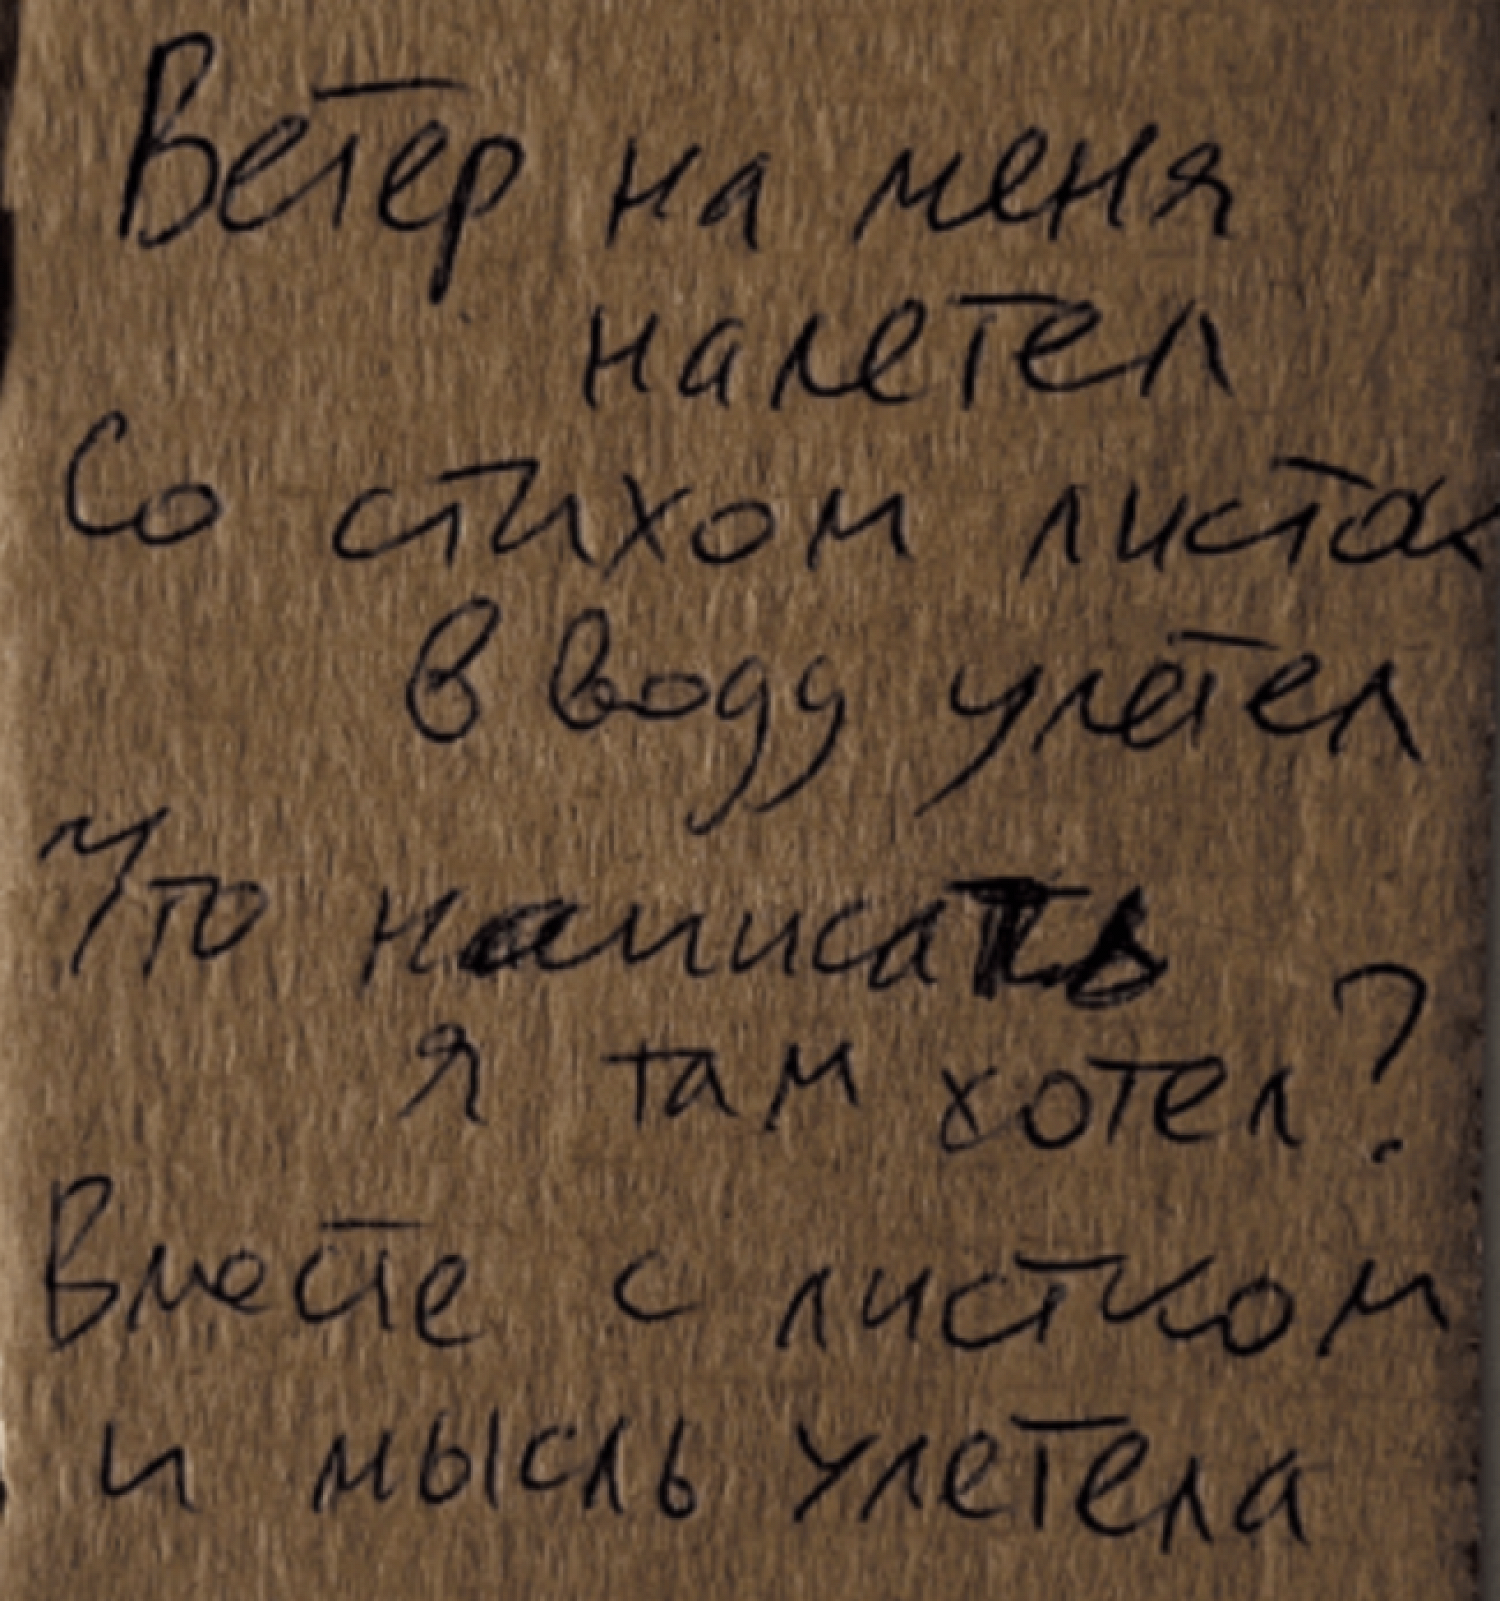 Ветер на меня
налетел
Со стихом листок
в воду улетел
Что написать
я там хотел?
Вместе с листком
и мысль улетела